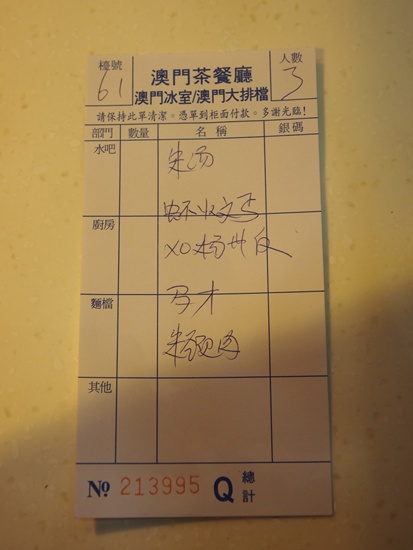 檯號
61
澳門茶餐廳
澳門冰室/澳門大排檔
人數
3
請保持此單清潔。憑單到柜面付款。多謝光臨!
部門 數量 名稱 銀碼
水吧
廚房
XO
麵檔
其他
№ 213995 Q 總計